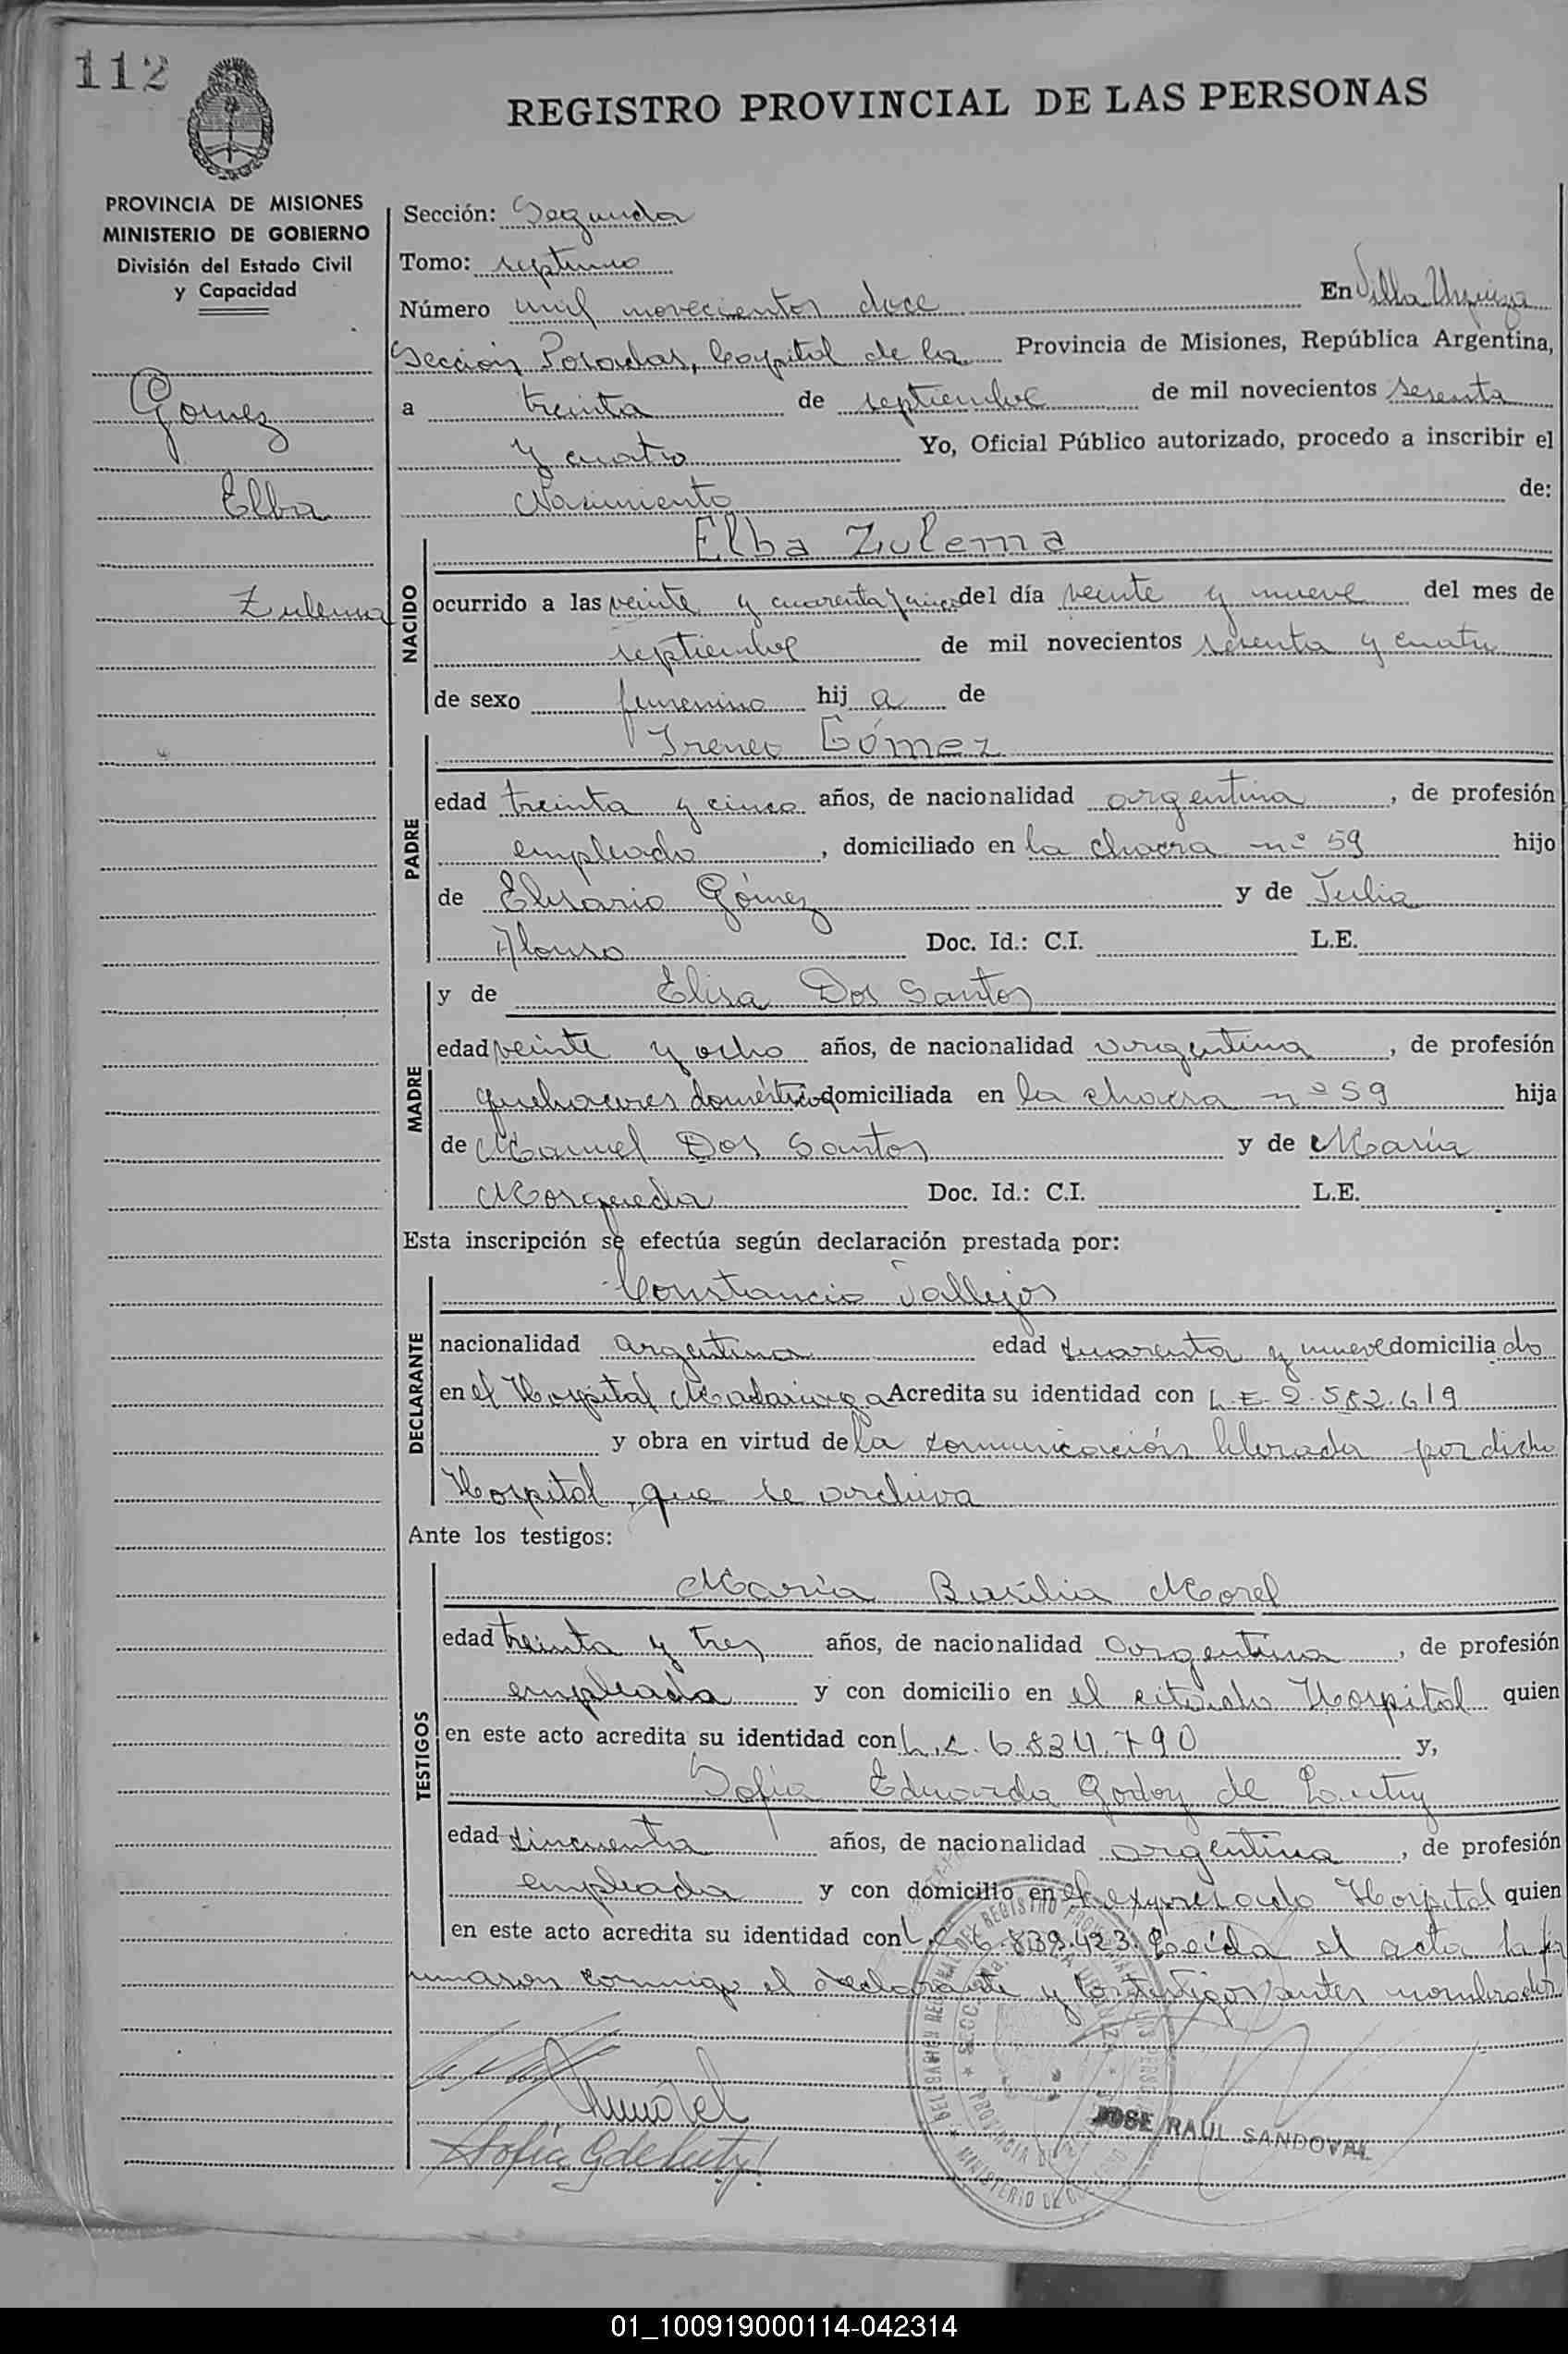 112
REGISTRO PROVINCIAL DE LAS PERSONAS
PROVINCIA DE MISIONES
MINISTERIO DE GOBIERNO
División del Estado Civil
y Capacidad
Gomez
Elba
Zulema
Sección: Segunda
Tomo: septimo
Número mil novecientos doce En Villa Urquiza
Sección Posadas, Capital de la Provincia de Misiones, República Argentina,
a treinta de septiembre de mil novecientos sesenta
y cuatro Yo, Oficial Público autorizado, procedo a inscribir el
Nacimiento de:
NACIDO
Elba Zulema
ocurrido a las veinte y cuarenta y cinco del día veinte y nueve del mes de
septiembre de mil novecientos sesenta y cuatro
de sexo femenino hij a de
PADRE
Ireneo Gómez
edad treinta y cinco años, de nacionalidad argentina, de profesión
empleado, domiciliado en la chacra nº 59 hijo
de Elisario Gómez y de Julia
Alonso Doc. Id.: C.I. L.E.
MADRE
y de Elisa Dos Santos
edad veinte y ocho años, de nacionalidad argentina, de profesión
quehaceres domésticos domiciliada en la chacra nº 59 hija
de Manuel Dos Santos y de María
Mosqueda Doc. Id.: C.I. L.E.
Esta inscripción se efectúa según declaración prestada por:
DECLARANTE
Constancio Vallejos
nacionalidad argentina edad cuarenta y nueve domicilia do
en el Hospital Madariaga Acredita su identidad con L.E. 2.582.619
y obra en virtud de la comunicación librada por dicho
Hospital, que se archiva
Ante los testigos:
TESTIGOS
María Basilia Morel
edad treinta y tres años, de nacionalidad argentina, de profesión
empleada y con domicilio en el citado Hospital quien
en este acto acredita su identidad con L.C. 6.834.790 y,
Sofia Eduarda Godoy de
edad cincuenta años, de nacionalidad argentina, de profesión
empleada y con domicilio en el expresado Hospital quien
en este acto acredita su identidad con L.C. 6.839.423. Leída el acta la fir
maron conmigo el declarante y los testigos antes nombrados
Sofía G de
JOSE RAUL SANDOVAL
01_100919000114-042314